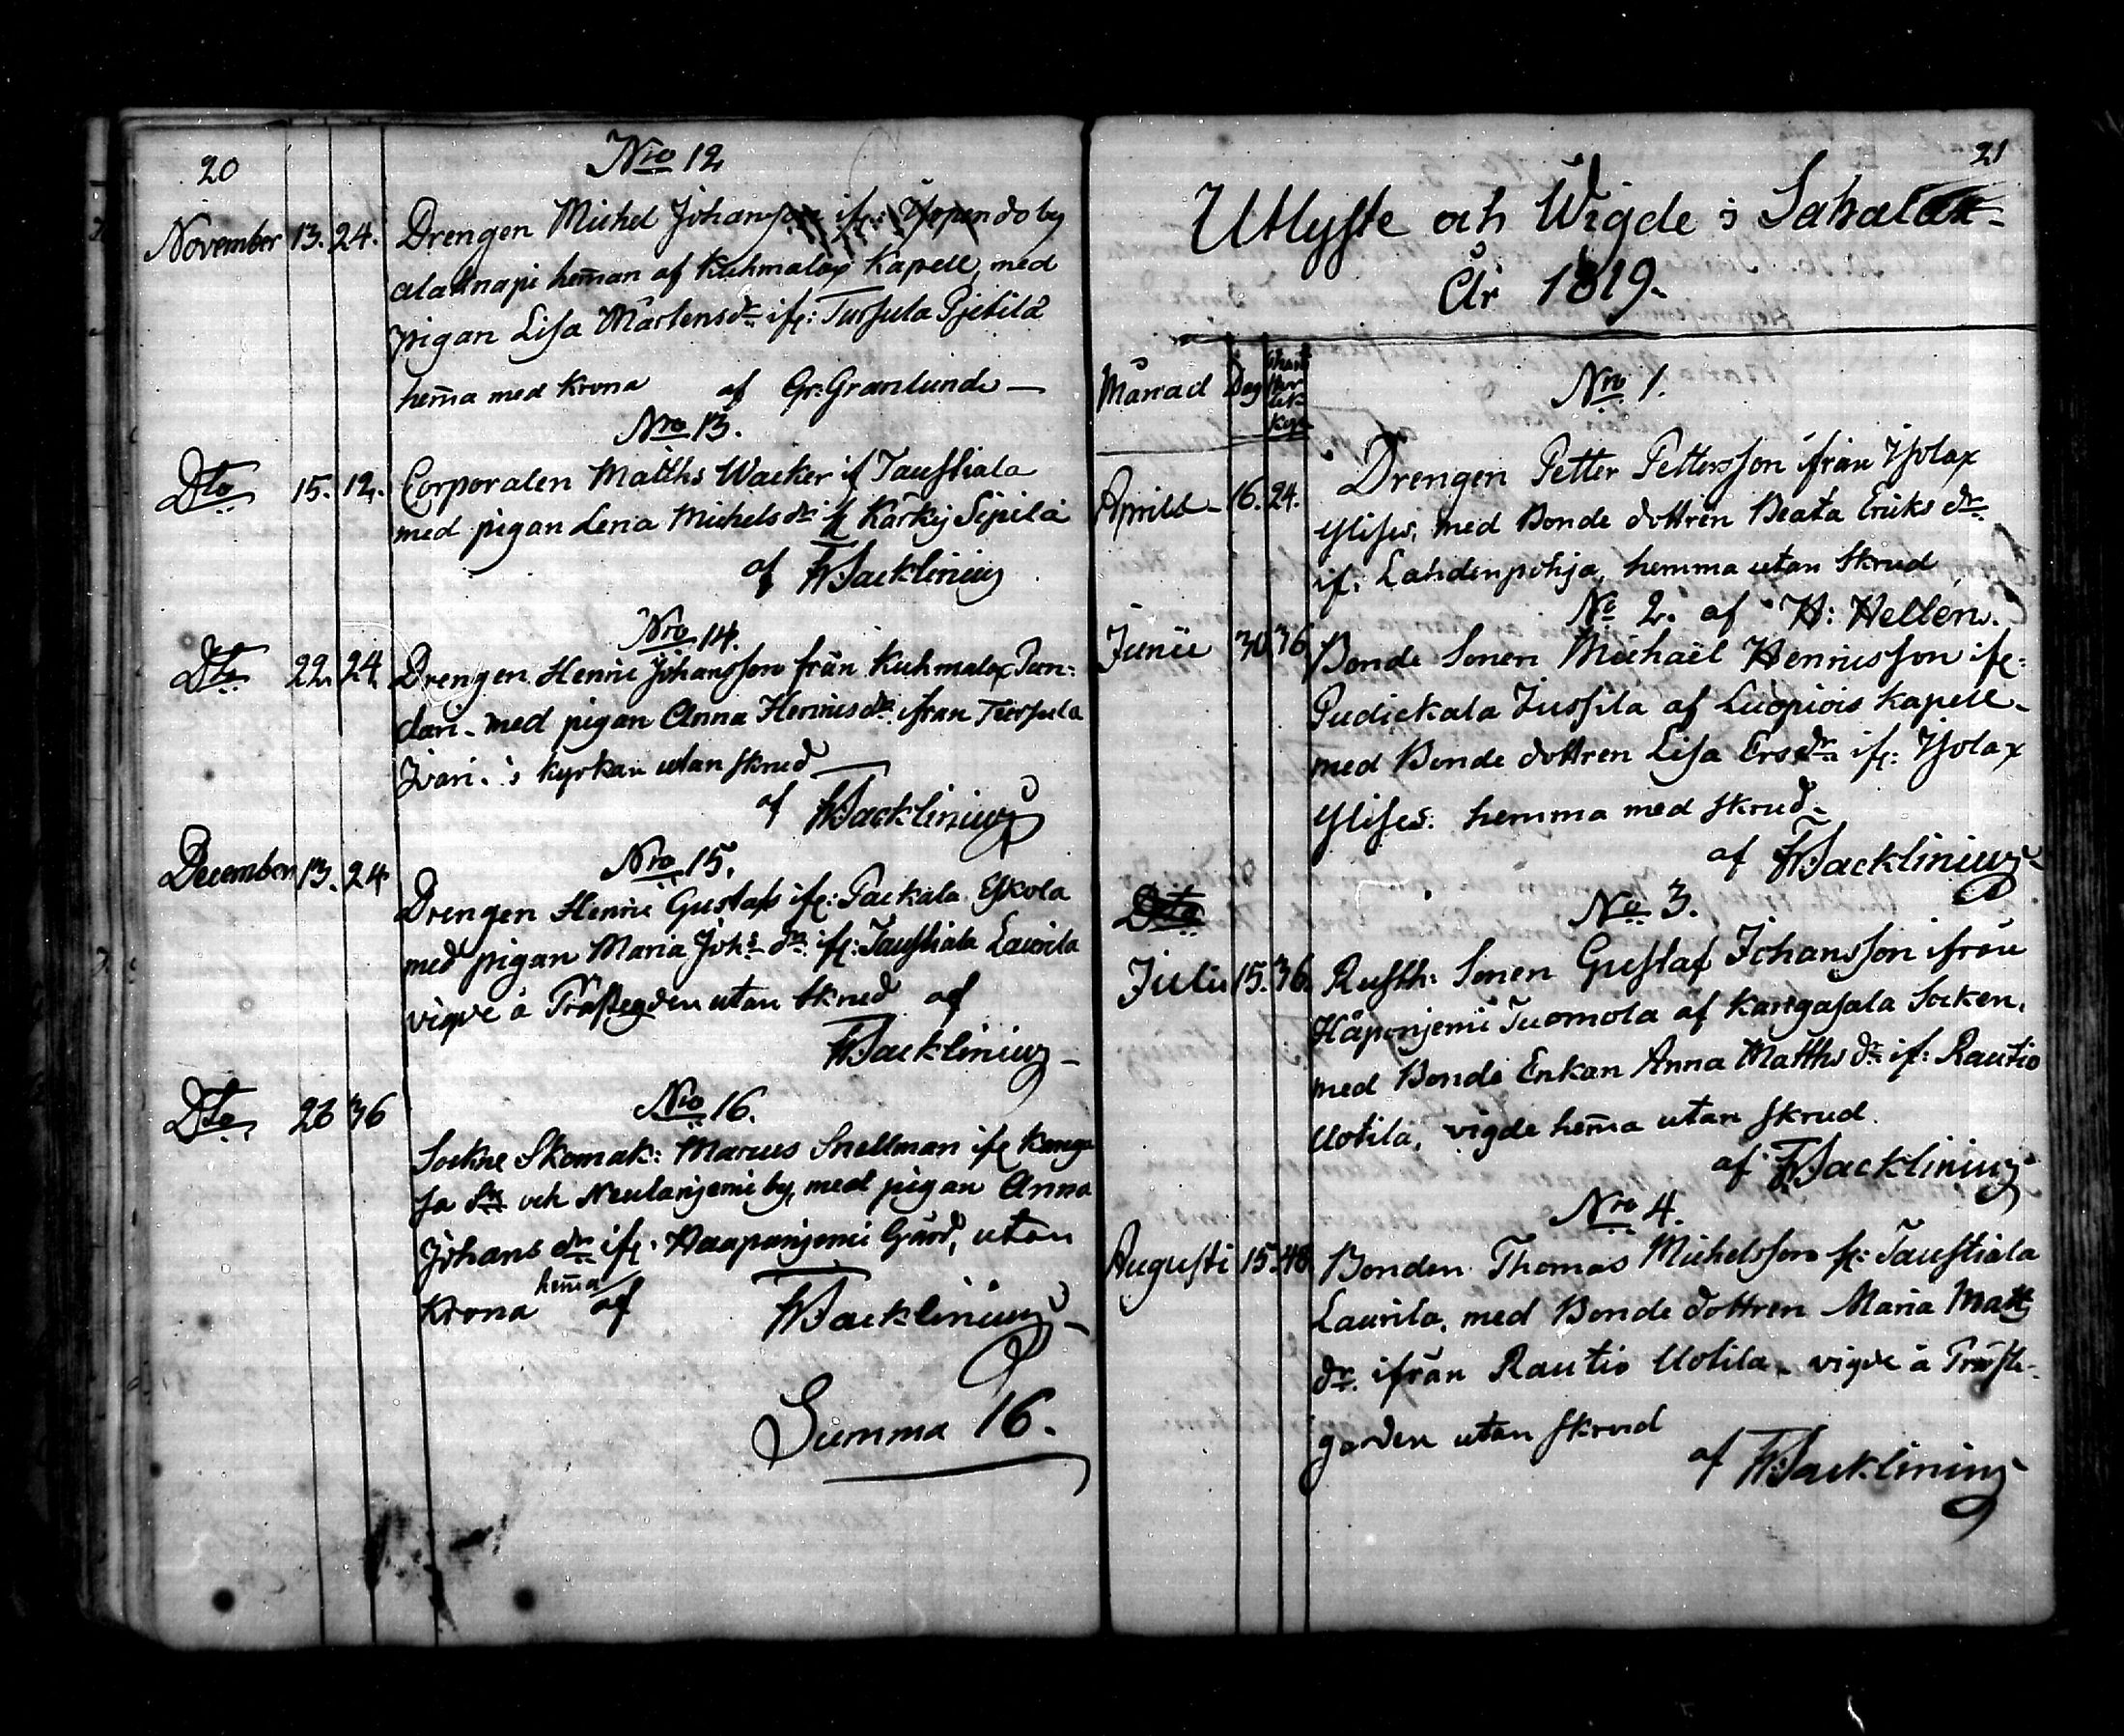 20
Nro 12
November 13. 24. Drengen Michel Johansson ifr: do by
alaknapi hem̄an af Kuhmalax Kapell, med
pigan Lisa Mårtens dr ifr: Tursula Pjetilä
hem̄a med Krona af Gr: Granlund
Nro 13.
Dto 15. 12. Corporalen Matths Wacker if Taustiala
med pigan Lena Michels dr if Kärky Sipilä
af F: W: Backlinius
Nro 14.
Dto 22. 24. Drengen Henric Johansson från Kuhmalax Pun-
dari. med pigan Anna Henricsdr ifrån Tursula
Ivari. i kyrkan utan skrud
af F: W: Backlinius
Nro 15.
December 13. 24 Drengen Henric Gustafs ifr: Packala Eskola
med pigan Maria Johs dr ifr: Taustiala Laurila
vigde å Prästegden utan skrud af
F: W: Backlinius
Nro 16.
Dto 26 36
Sockne Skomak: Marcus Snellman ifr Kanga
sa Sn och Neulanjemi by, med pigan Anna
Johans dr ifr. Haapanjemi Gård, utan
Krona hem̄a af F: W: Backlinius
Summa 16.
21
Utlyste och Wigde i Sahalax
År 1819.
Månad Dag
Nro 1.
Aprill 16. 24. Drengen Petter Pettersson ifrån Isolax
Ylises, med Bonde dottren Beata Eriks dr
if. Lahdenpohja, hemma utan Skrud
No 2. af H: Hellén.
Junii 30 36 Bonde Sonen Michaël Henricsson ifr:
Pudickala Jussila af Luopiois Kapell
med Bonde dottren Lisa Ers dr ifr: Isolax
Ylises. hemma med skrud
af F: W: Backlinius
Dto
No 3.
Julii 15. 36. Rusth: Sonen Gustaf Johansson ifrån
Haponjemi Tuomola af Kangasala Socken,
med Bonde Enkan Anna Matths dr if: Rautio
Uotila, vigde hem̄a utan skrud.
af F: W: Backlinius
Nro 4.
Augusti 15. 48. Bonden Thomas Michelsson fr: Taustiala
Laurila, med Bonde dottren Maria Matts
dr. ifrån Rautio Uotila vigde å Präste-
gården utan skrud
af F: W: Backlinius